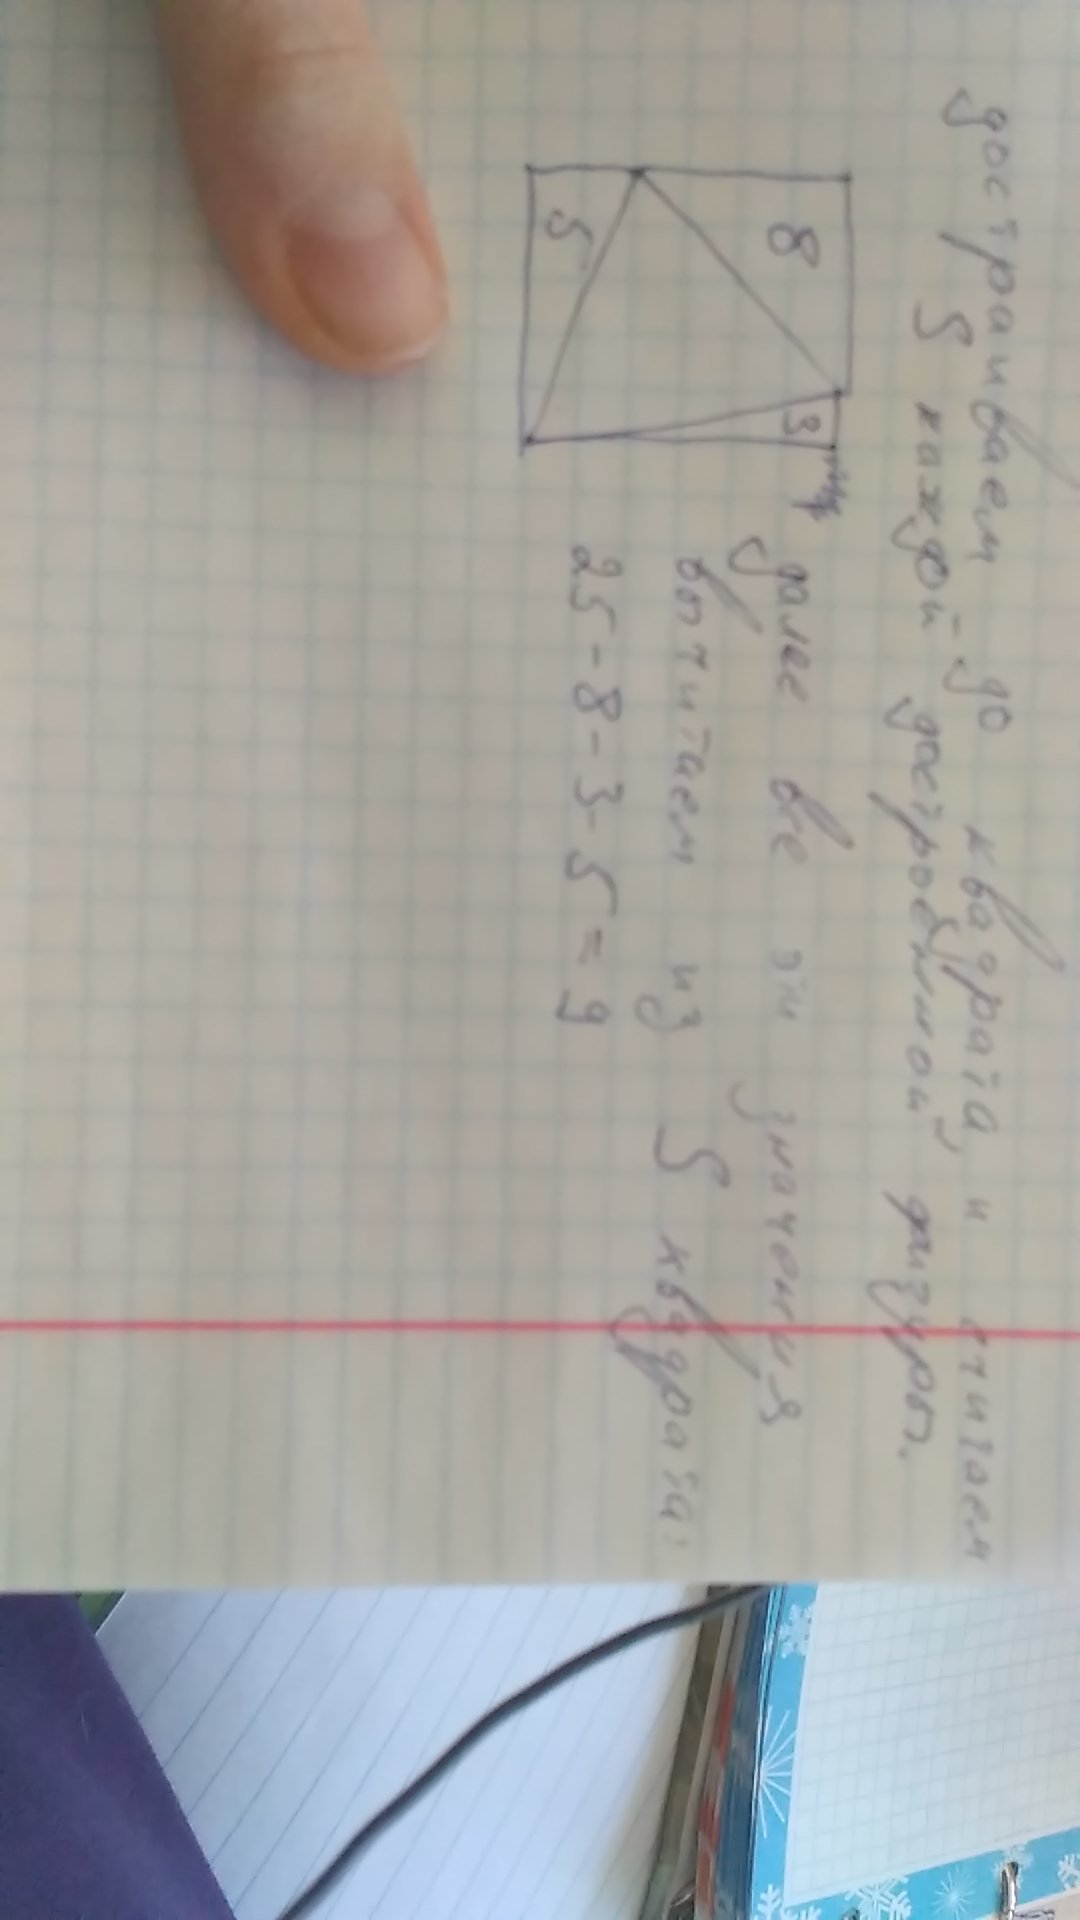 достраиваем до квадрата, и считаем
S каждой достроенной фигуры.
8
3
5
далее все эти значения
вычитаем из S квадрата:
25-8-3-5=9